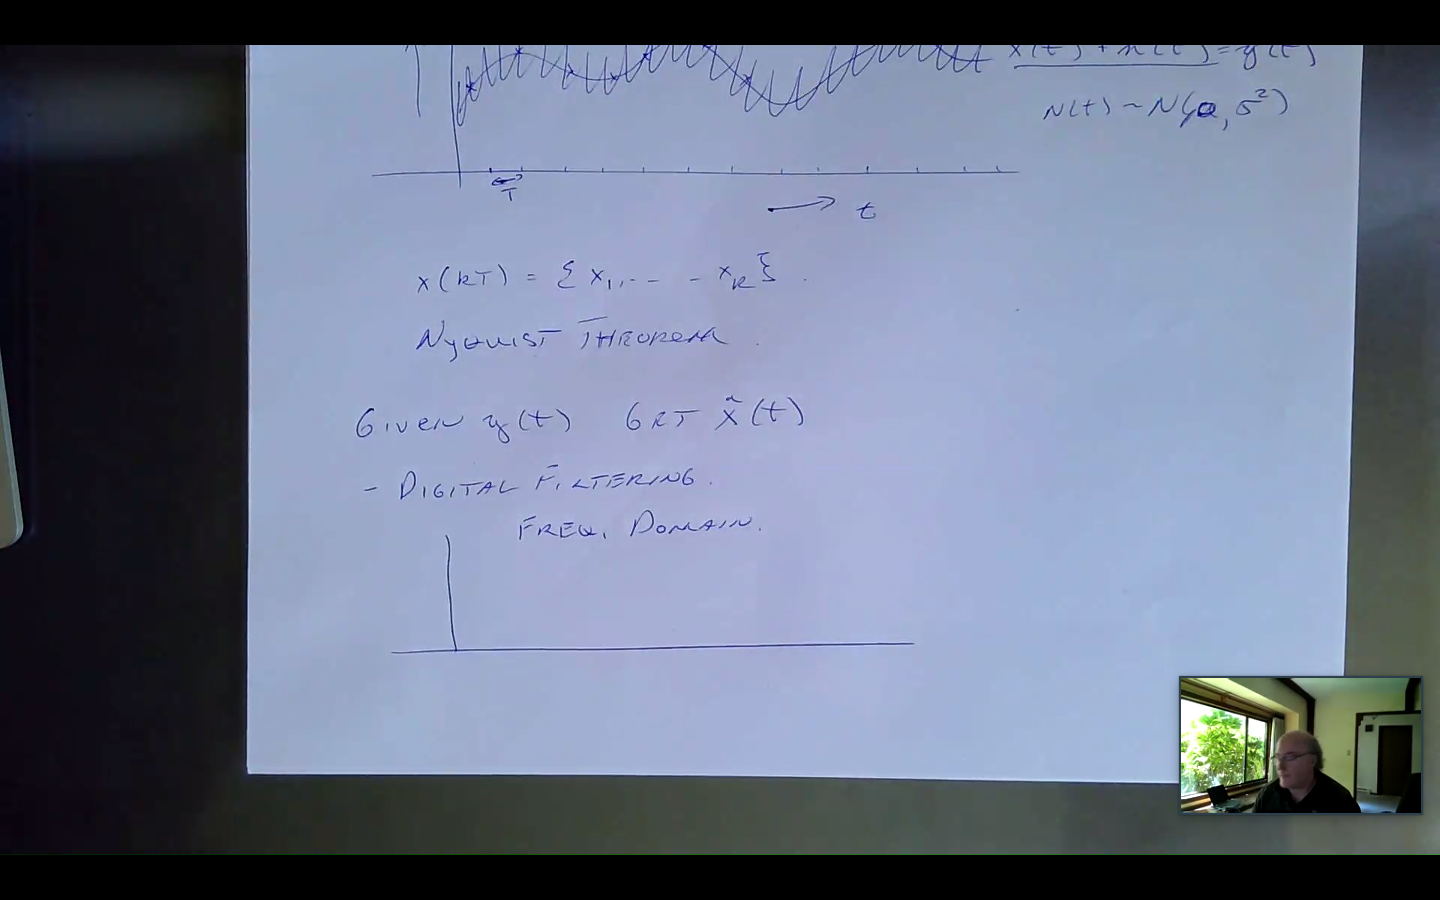 x(t) + n(t) = y(t)
N(t) ~ N(0, σ²)
T
t
x(kT) = { x₁, -- - xₖ }
NYQUIST THEOREM
GIVEN y(t) GET x̂(t)
- DIGITAL FILTERING.
FREQ. DOMAIN.